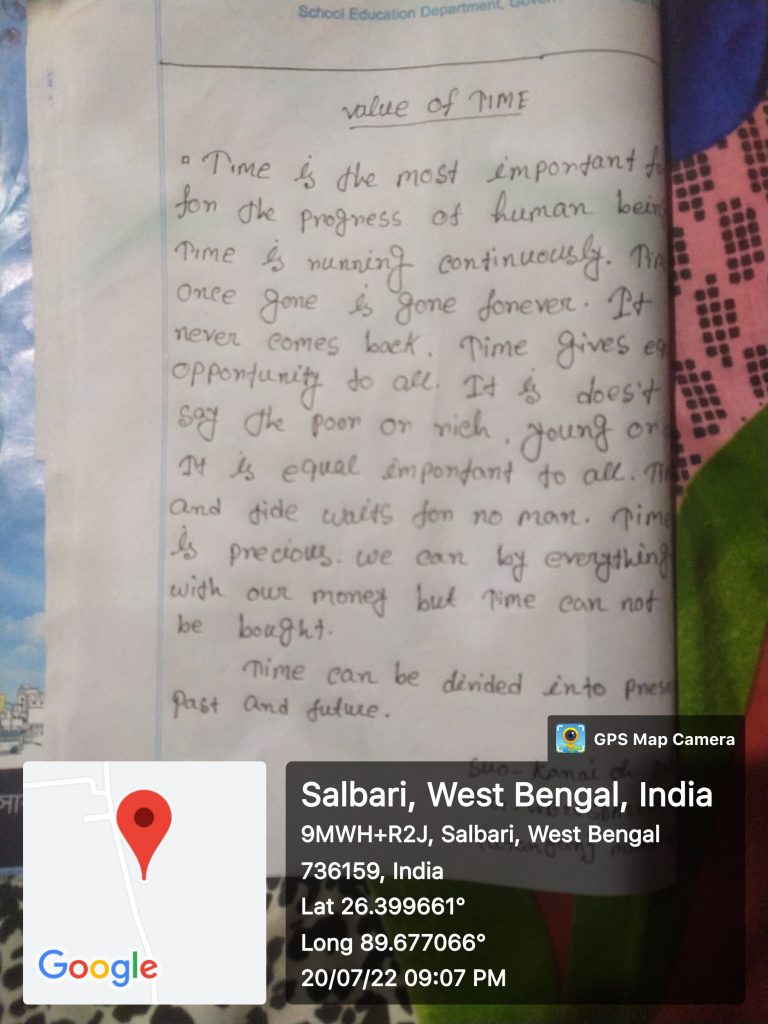 School Education Department,
value of TIME
Time is the most important
for the progress of human
Time is running continuously.
once gone is gone forever. It
never comes back. Time gives
opportunity to all. It is does't
say the poor or rich, young or
It is equal important to all.
and tide waits for no man. Time
is precious. we can by everything
with our money but Time can not
be bought.
Time can be divided into
Past and future.
GPS Map Camera
Google
Salbari, West Bengal, India
9MWH+R2J, Salbari, West Bengal
736159, India
Lat 26.399661°
Long 89.677066°
20/07/22 09:07 PM